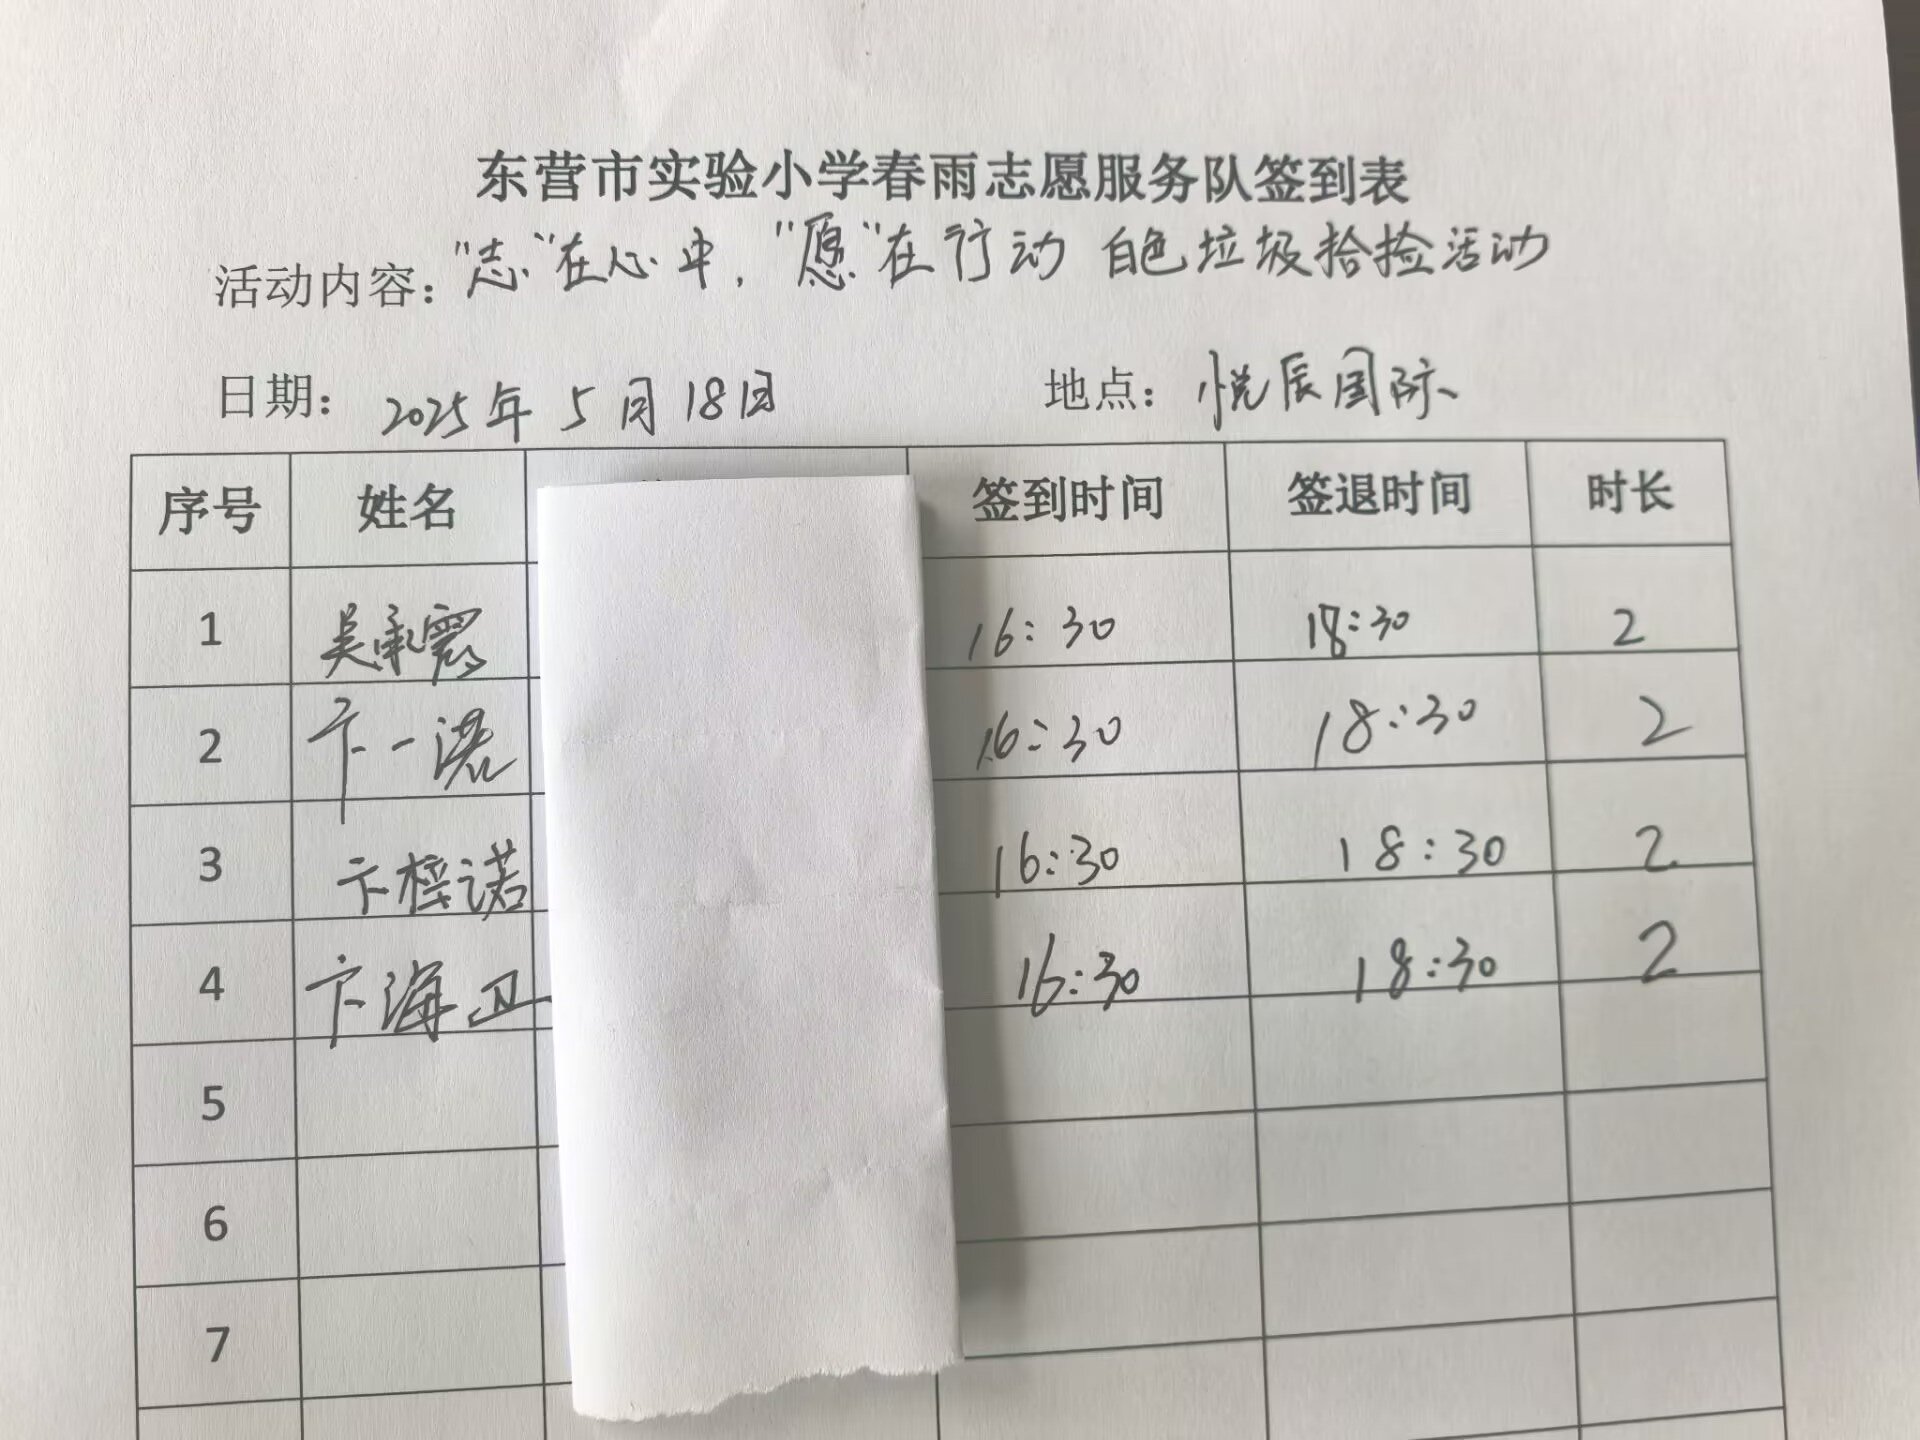 东营市实验小学春雨志愿服务队签到表
活动内容："志"在心中，"愿"在行动 白色垃圾拾捡活动
日期：2025年5月18日 地点：悦辰国际
序号 姓名 签到时间 签退时间 时长
1 吴承震 16:30 18:30 2
2 卞一 16:30 18:30 2
3 卞梓诺 16:30 18:30 2
4 卞海卫 16:30 18:30 2
5
6
7